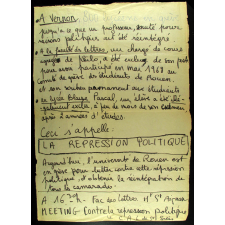 A Vernon
jusqu'à ce que un professeur, sauté pour
raisons politiques ait été réintégré
• A la faculté des lettres, un chargé de cours
de philo, a été exclu de son poste
pour avoir participé en mai 1968 au
Comité de grève des étudiants de Rouen
et son soutien permanent aux étudiants
• Au lycée Blaise Pascal, un élève a été
exclu, à peu de mois de son
après 2 années d'études.
Ceci s'appelle :
LA REPRESSION POLITIQUE
Aujourd'hui, l'université de Rouen est
en grève pour lutter contre cette répression
politique, et obtenir la réintégration de
tous les camarades.
A 16h - Fac des Lettres Mt St Aignan
MEETING - Contre la repression politique